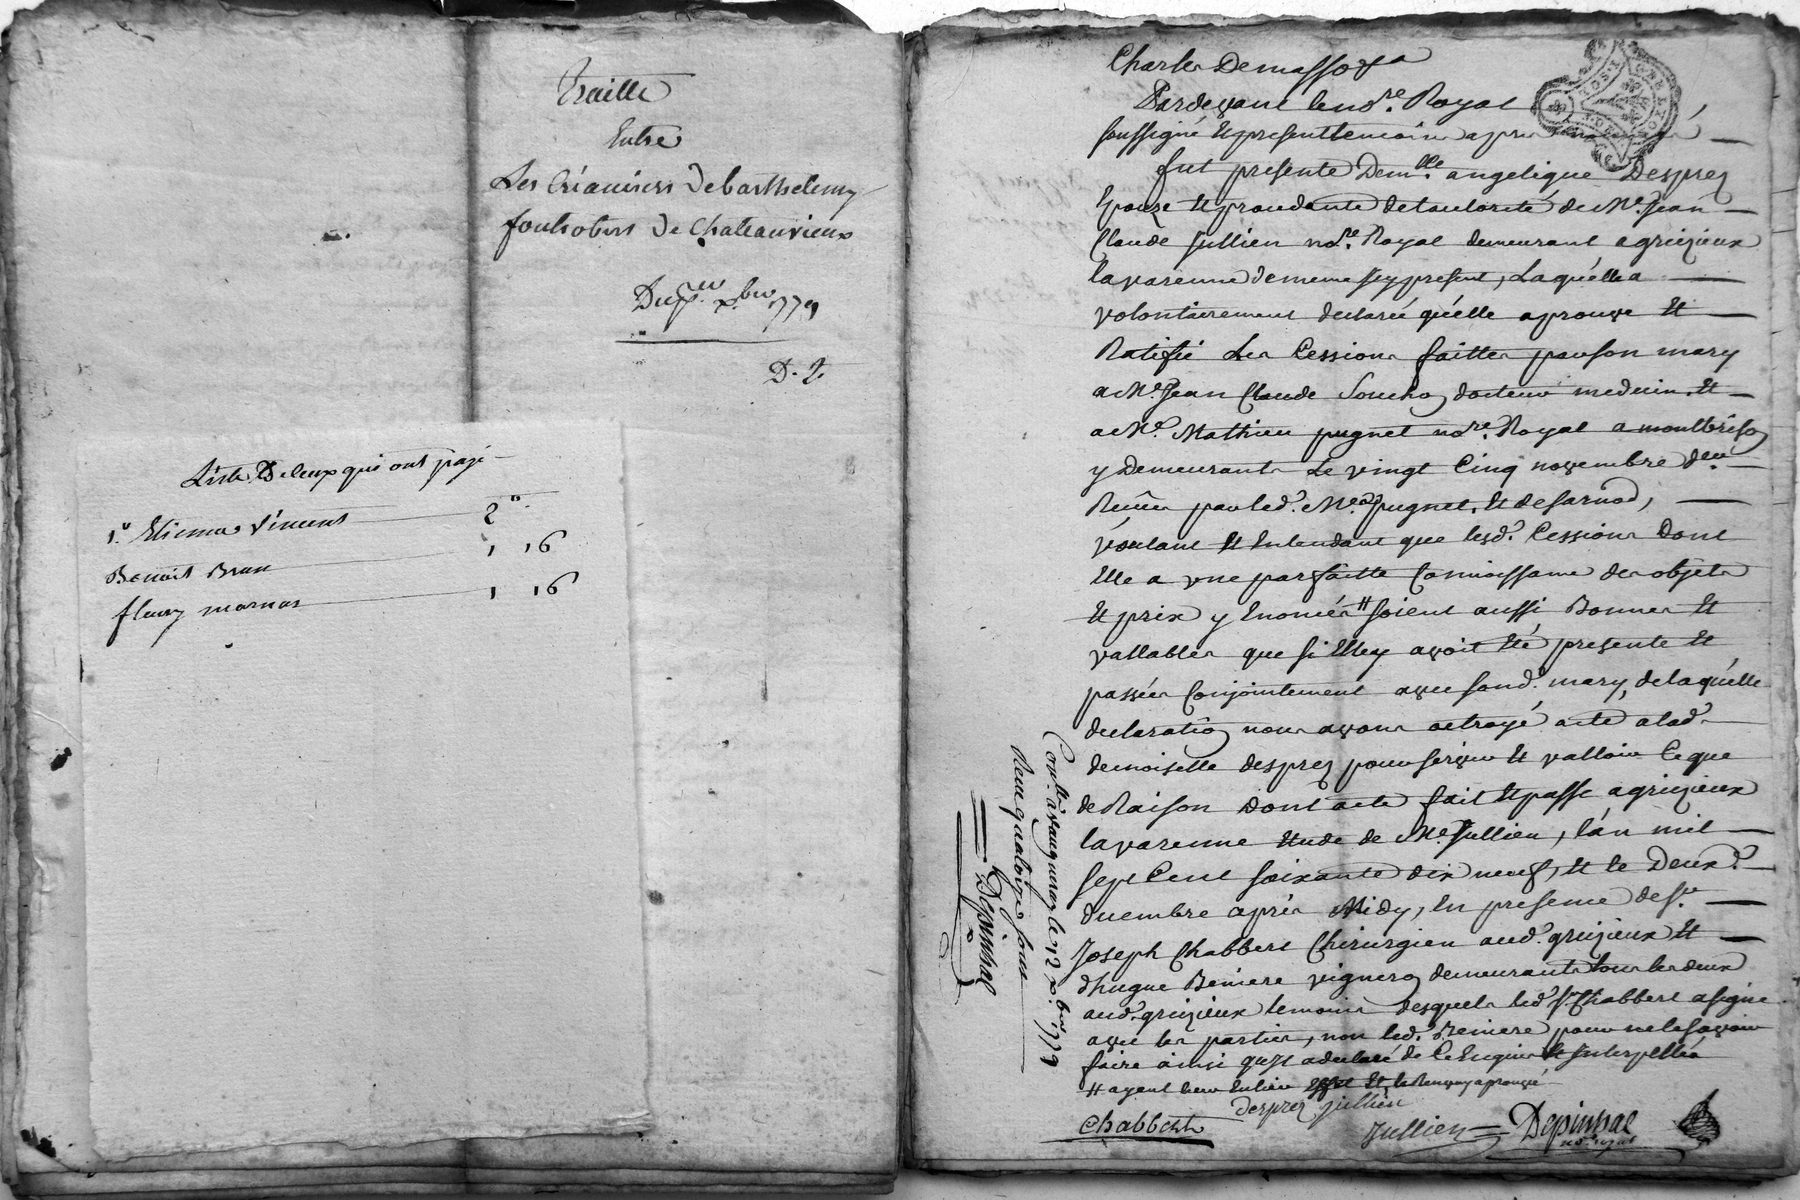 Traitte
Entre
Les Créanciers De barthelemy
foulsobert De Chateauvieux
Du 9bre 1779
D. 2
Liste De Ceux qui ont payé
1° Etienne Vincent 2"
Benoit Brun 1 16
fleury marnas 1 16
Charles Demasso &a
Pardevant le nore. Royal
soussigné Et presents temoins apres
fut presente Demlle. angelique Desprez
Epouze Et procedante de l'autorité de Me. Jean
Claude Jullien nore. Royal demeurant a grizieux
la varenne de meme icy present, Laquelle a
volontairement declaré qu'elle aprouve Et
Ratifie Les Cessions faittes par son mary
a Me. Jean Claude docteur medecin, Et
a Me. Mathieu pugnet nore. Royal a montbrison
y Demeurants Le vingt Cinq novembre der.
Reçues par led. Me. pugnet, Et de farnod,
voulant Et Entendant que lesd. Cessions Dont
Elle a une parfaitte Connoissance des objets
Et prix y Enoncés # soient aussi Bonnes Et
vallables que si Elle y avoit Eté presente Et
passées Conjointement avec sond. mary, de laquelle
declaration nous avons octroyé acte a lad.
demoiselle desprez pour servir Et valloir Ce que
de Raison Dont acte fait Et passé a grizieux
la varenne Etude de Me. Jullien, l'an mil
sept Cent soixante dix neuf, Et le Deux
decembre après Midy, En presence de sr.
Joseph Chabbert Chirurgien aud. grizieux Et
d'hugue Beniere vigneron demeurants tous les deux
aud. grizieux temoins desquels led. sr. Chabbert a signé
avec les parties, non led. Beniere pour ne le savoir
faire ainsi qu'il a declaré de Ce Enquis Et Interpellés
# ayent leur Entier Effet Et, le Renvoy aprouvé
desprez jullien
Chabbert
Jullien
Depinhac
nore. royal
Conlle. a vaugneray le 12 xbre 1779
Reçu quatorze sous
Depinhac